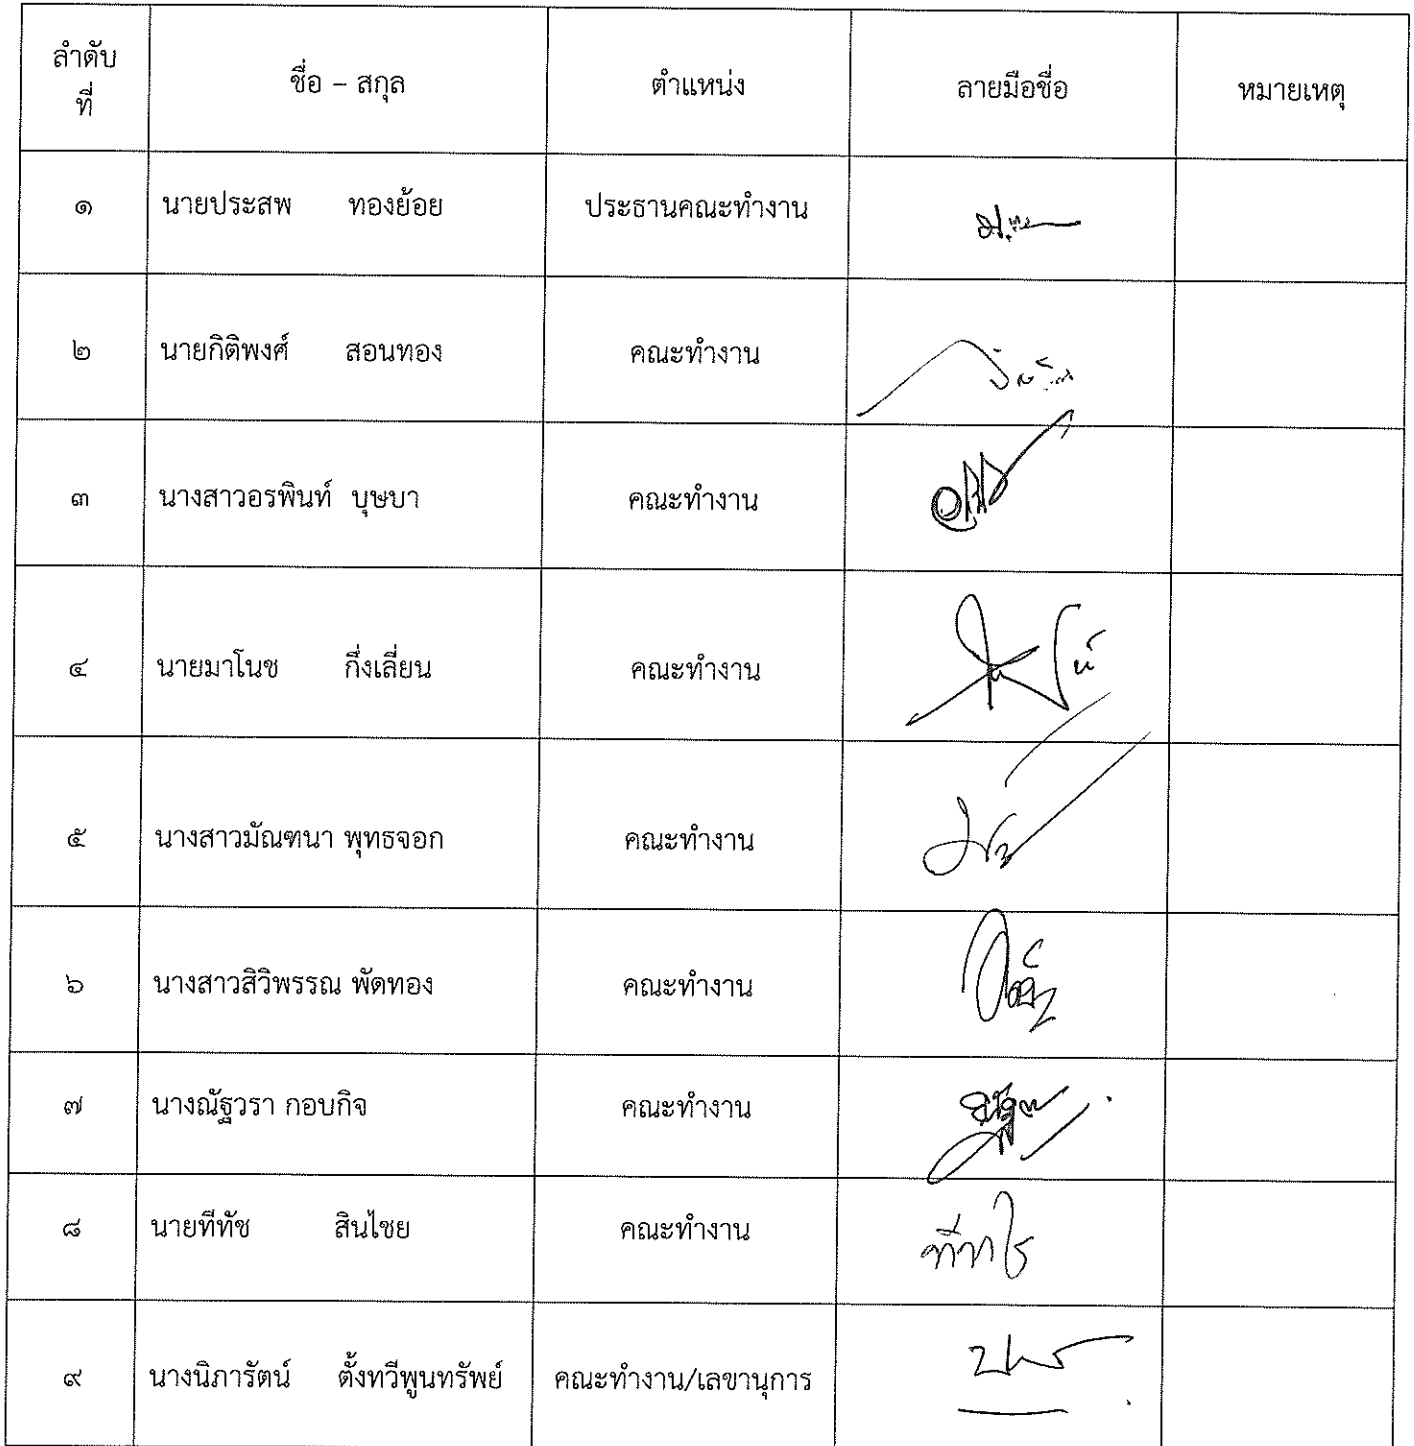 ลำดับ
ที่
ชื่อ – สกุล
ตำแหน่ง
ลายมือชื่อ
หมายเหตุ
๑ นายประสพ ทองย้อย ประธานคณะทำงาน
๒ นายกิติพงศ์ สอนทอง คณะทำงาน
๓ นางสาวอรพินท์ บุษบา คณะทำงาน
๔ นายมาโนช กึ่งเลี่ยน คณะทำงาน
๕ นางสาวมัณฑนา พุทธจอก คณะทำงาน
๖ นางสาวสิวิพรรณ พัดทอง คณะทำงาน
๗ นางณัฐวรา กอบกิจ คณะทำงาน
๘ นายทีทัช สินไชย คณะทำงาน
๙ นางนิภารัตน์ ตั้งทวีพูนทรัพย์ คณะทำงาน/เลขานุการ